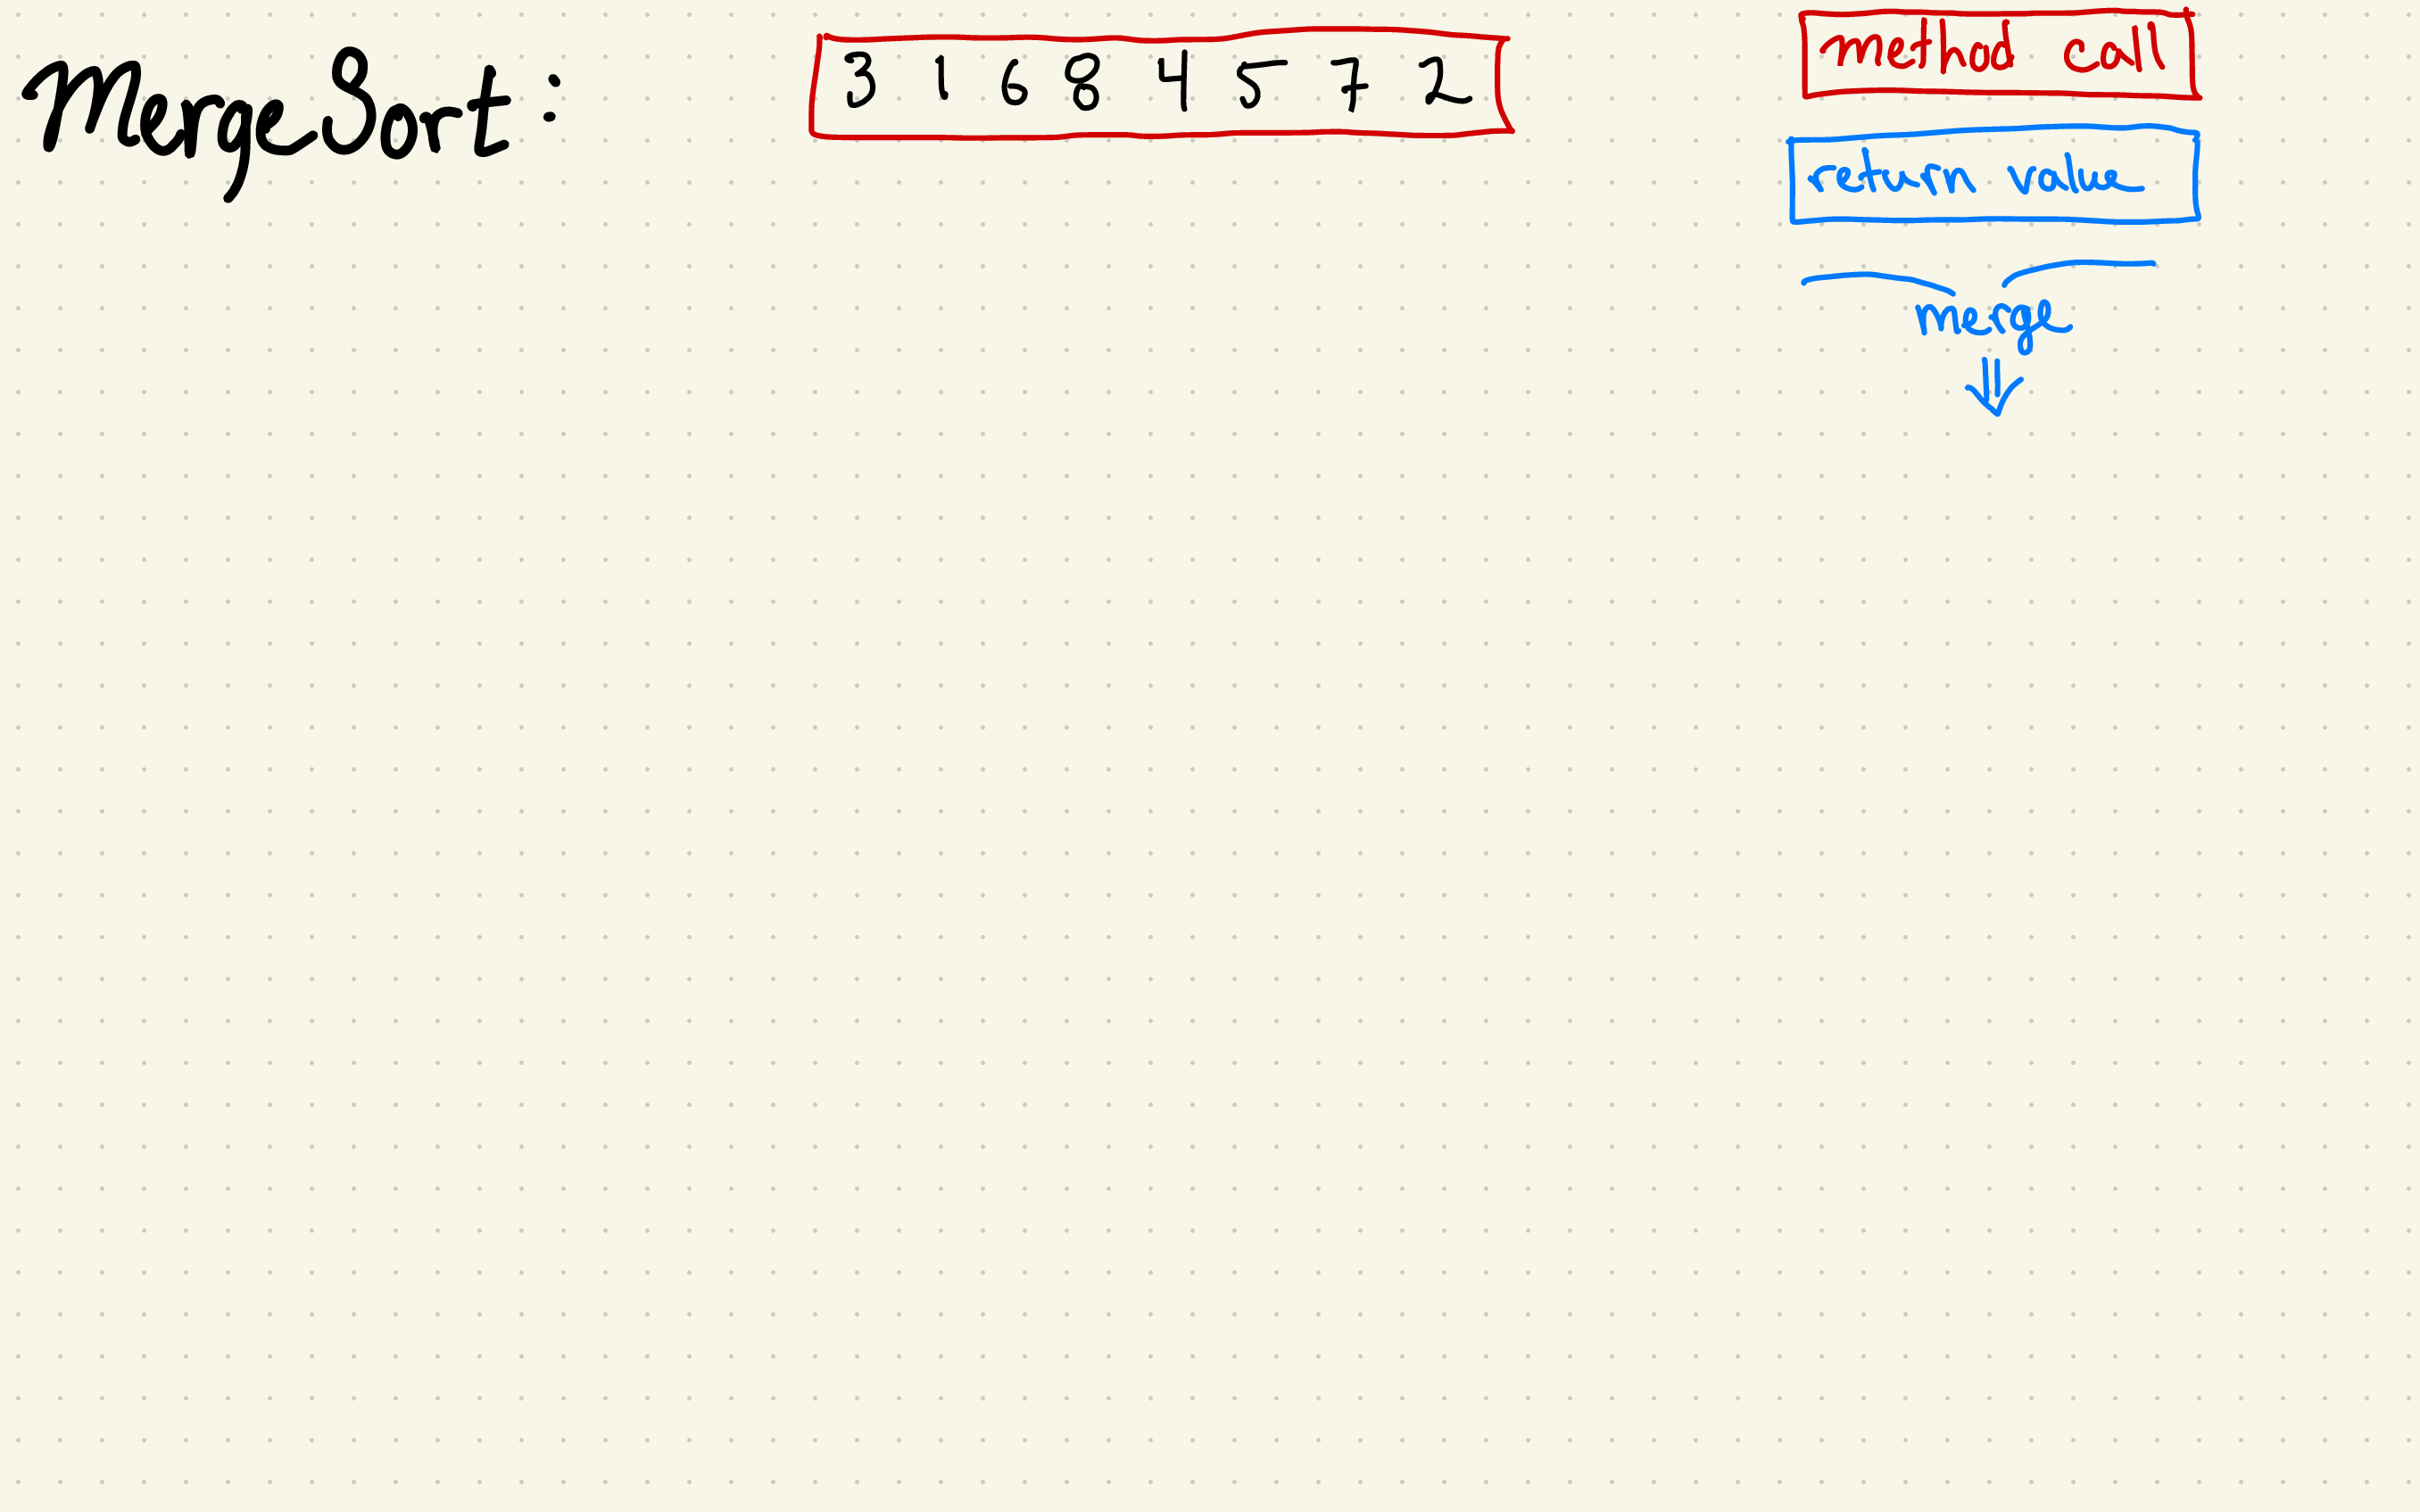 MergeSort:
3 1 6 8 4 5 7 2
method call
return value
merge